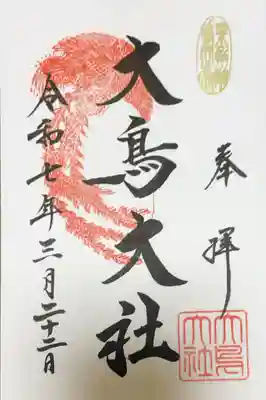 奉拝
大鳥大社
大鳥大社
令和七年三月二十二日